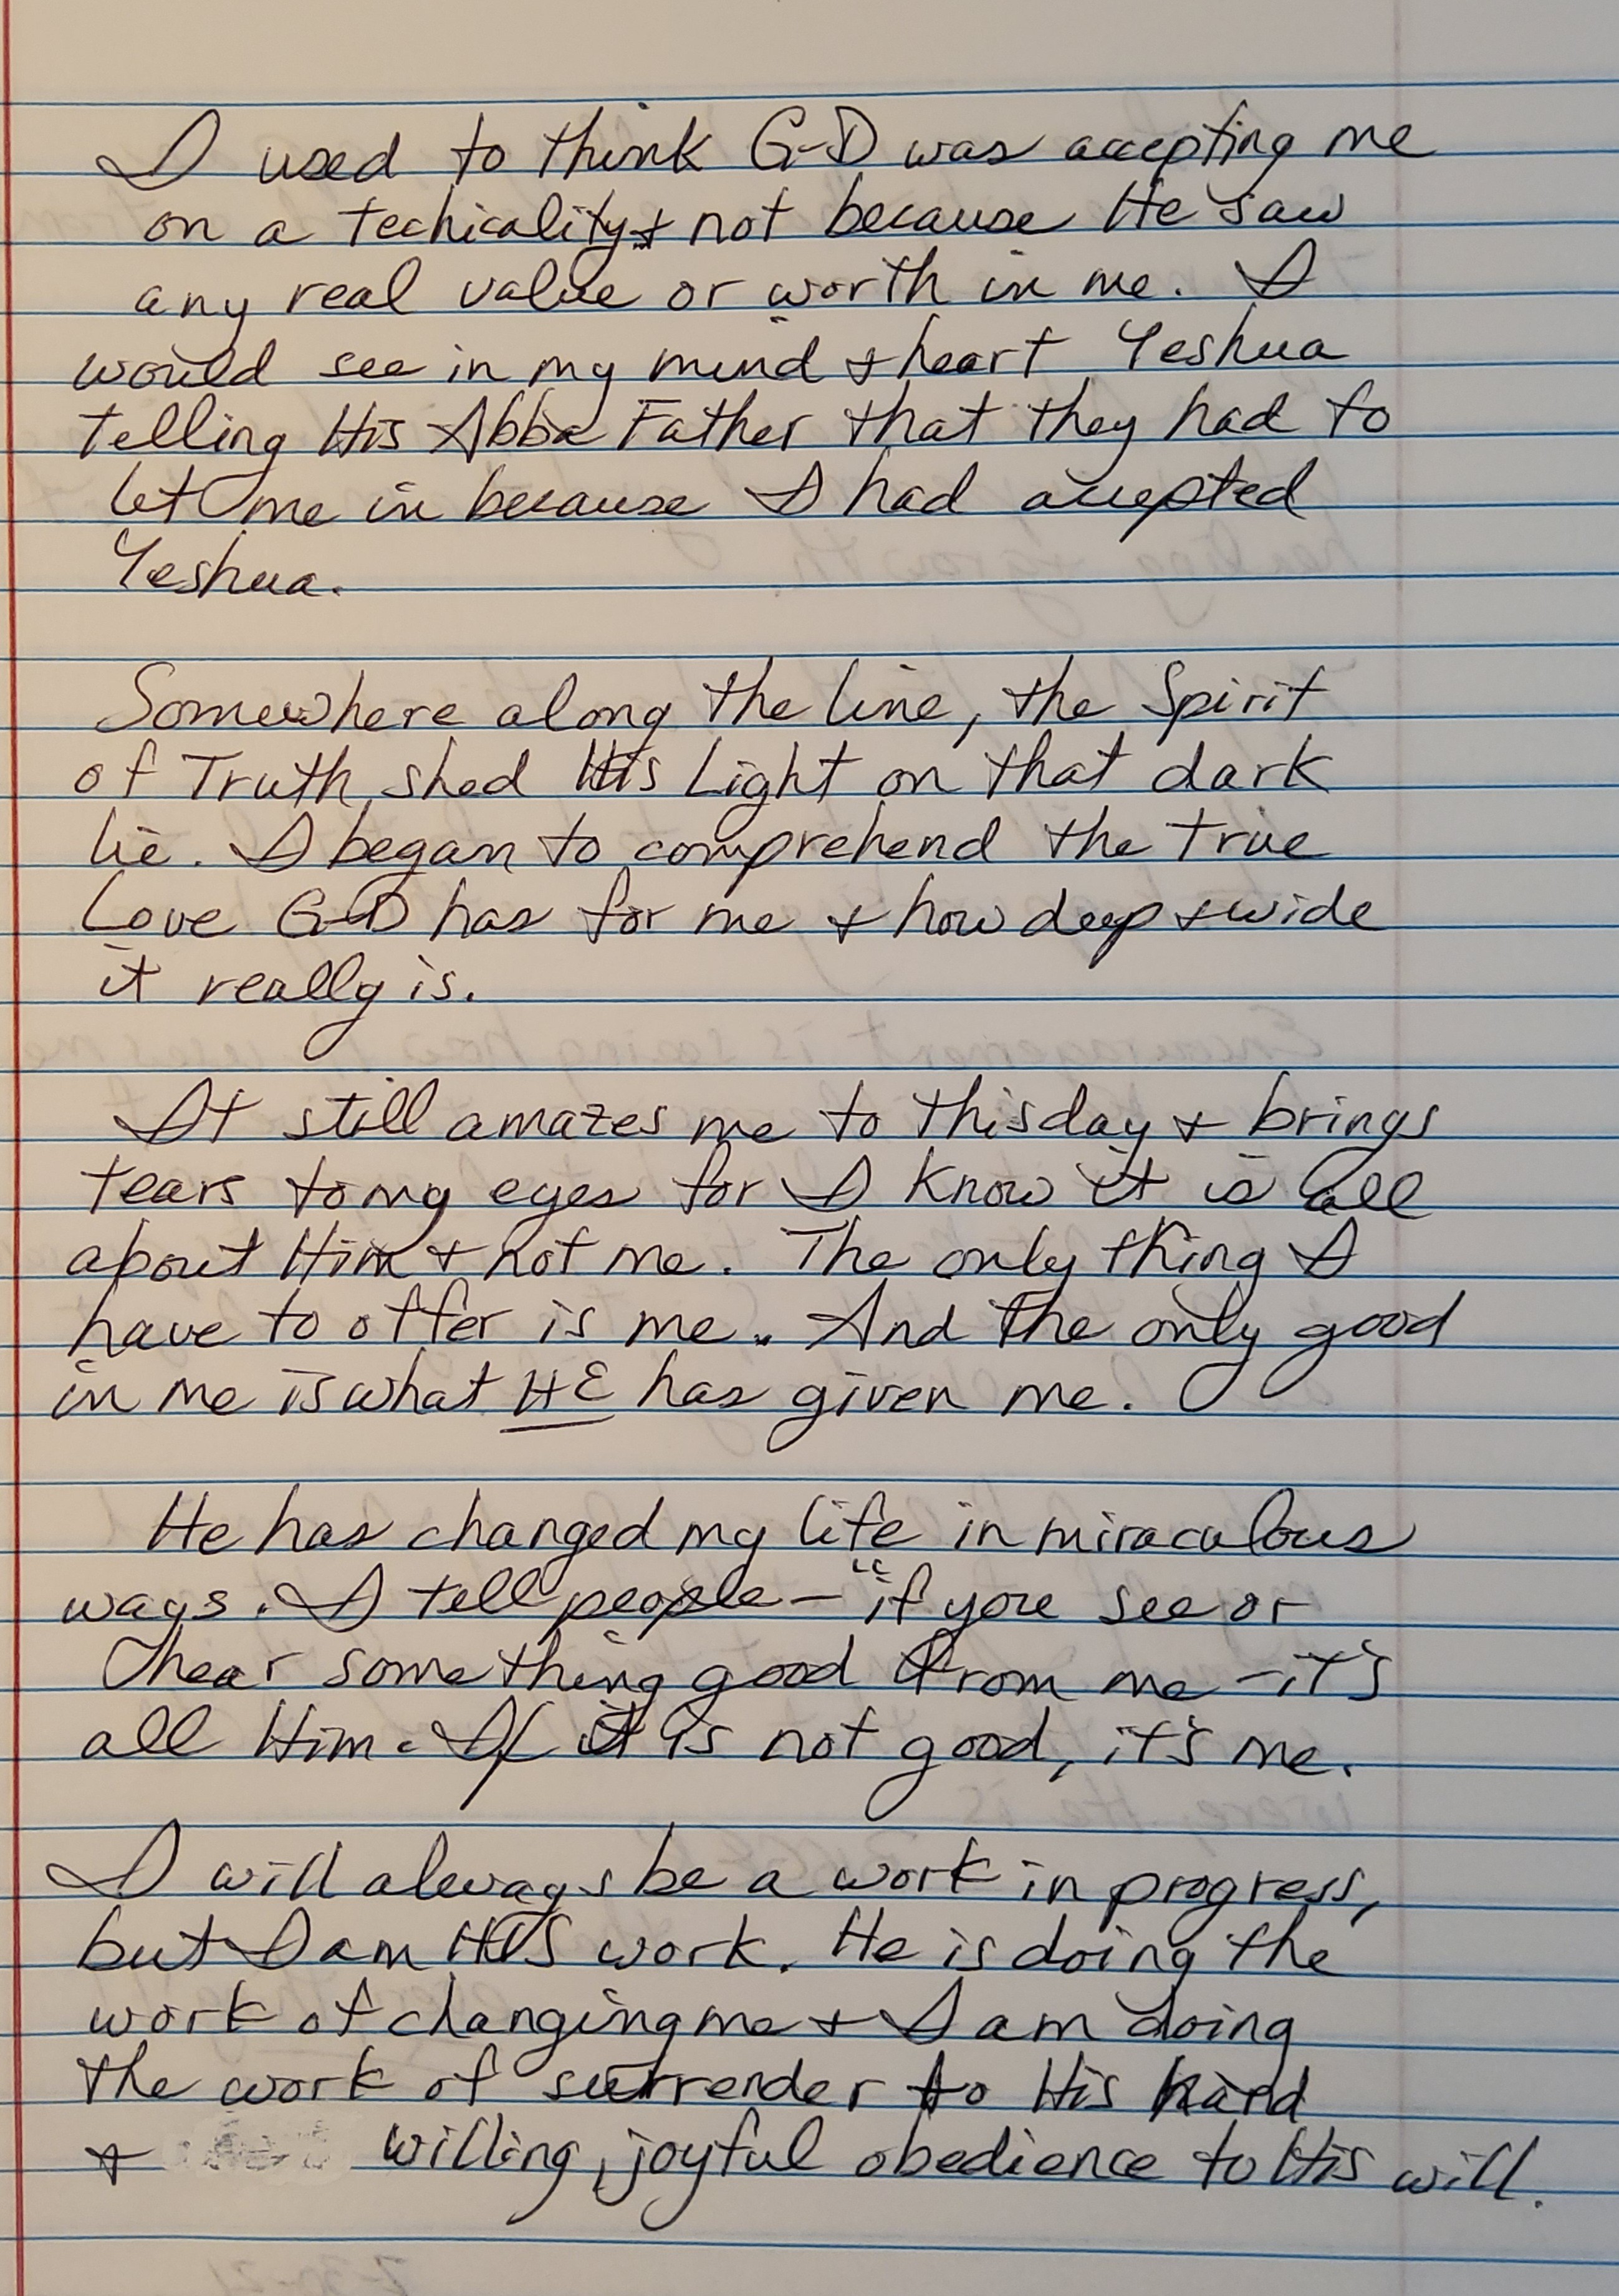 I used to think G-D was accepting me
on a techicality + not because He saw
any real value or worth in me. I
would see in my mind + heart Yeshua
telling His Abba Father that they had to
let me in because I had accepted
Yeshua.
Somewhere along the line, the Spirit
of Truth shed His Light on that dark
lie. I began to comprehend the true
Love G-D has for me + how deep + wide
it really is.
It still amazes me to this day + brings
tears to my eyes for I know it is all
about Him + not me. The only thing I
have to offer is me. And the only good
in me is what HE has given me.
He has changed my life in miraculous
ways. I tell people - "if you see or
hear something good from me - it's
all Him. If it is not good, it's me.
I will always be a work in progress,
but I am HIS work. He is doing the
work of changing me + I am doing
the work of surrender to His hand
+ willing, joyful obedience to His will.